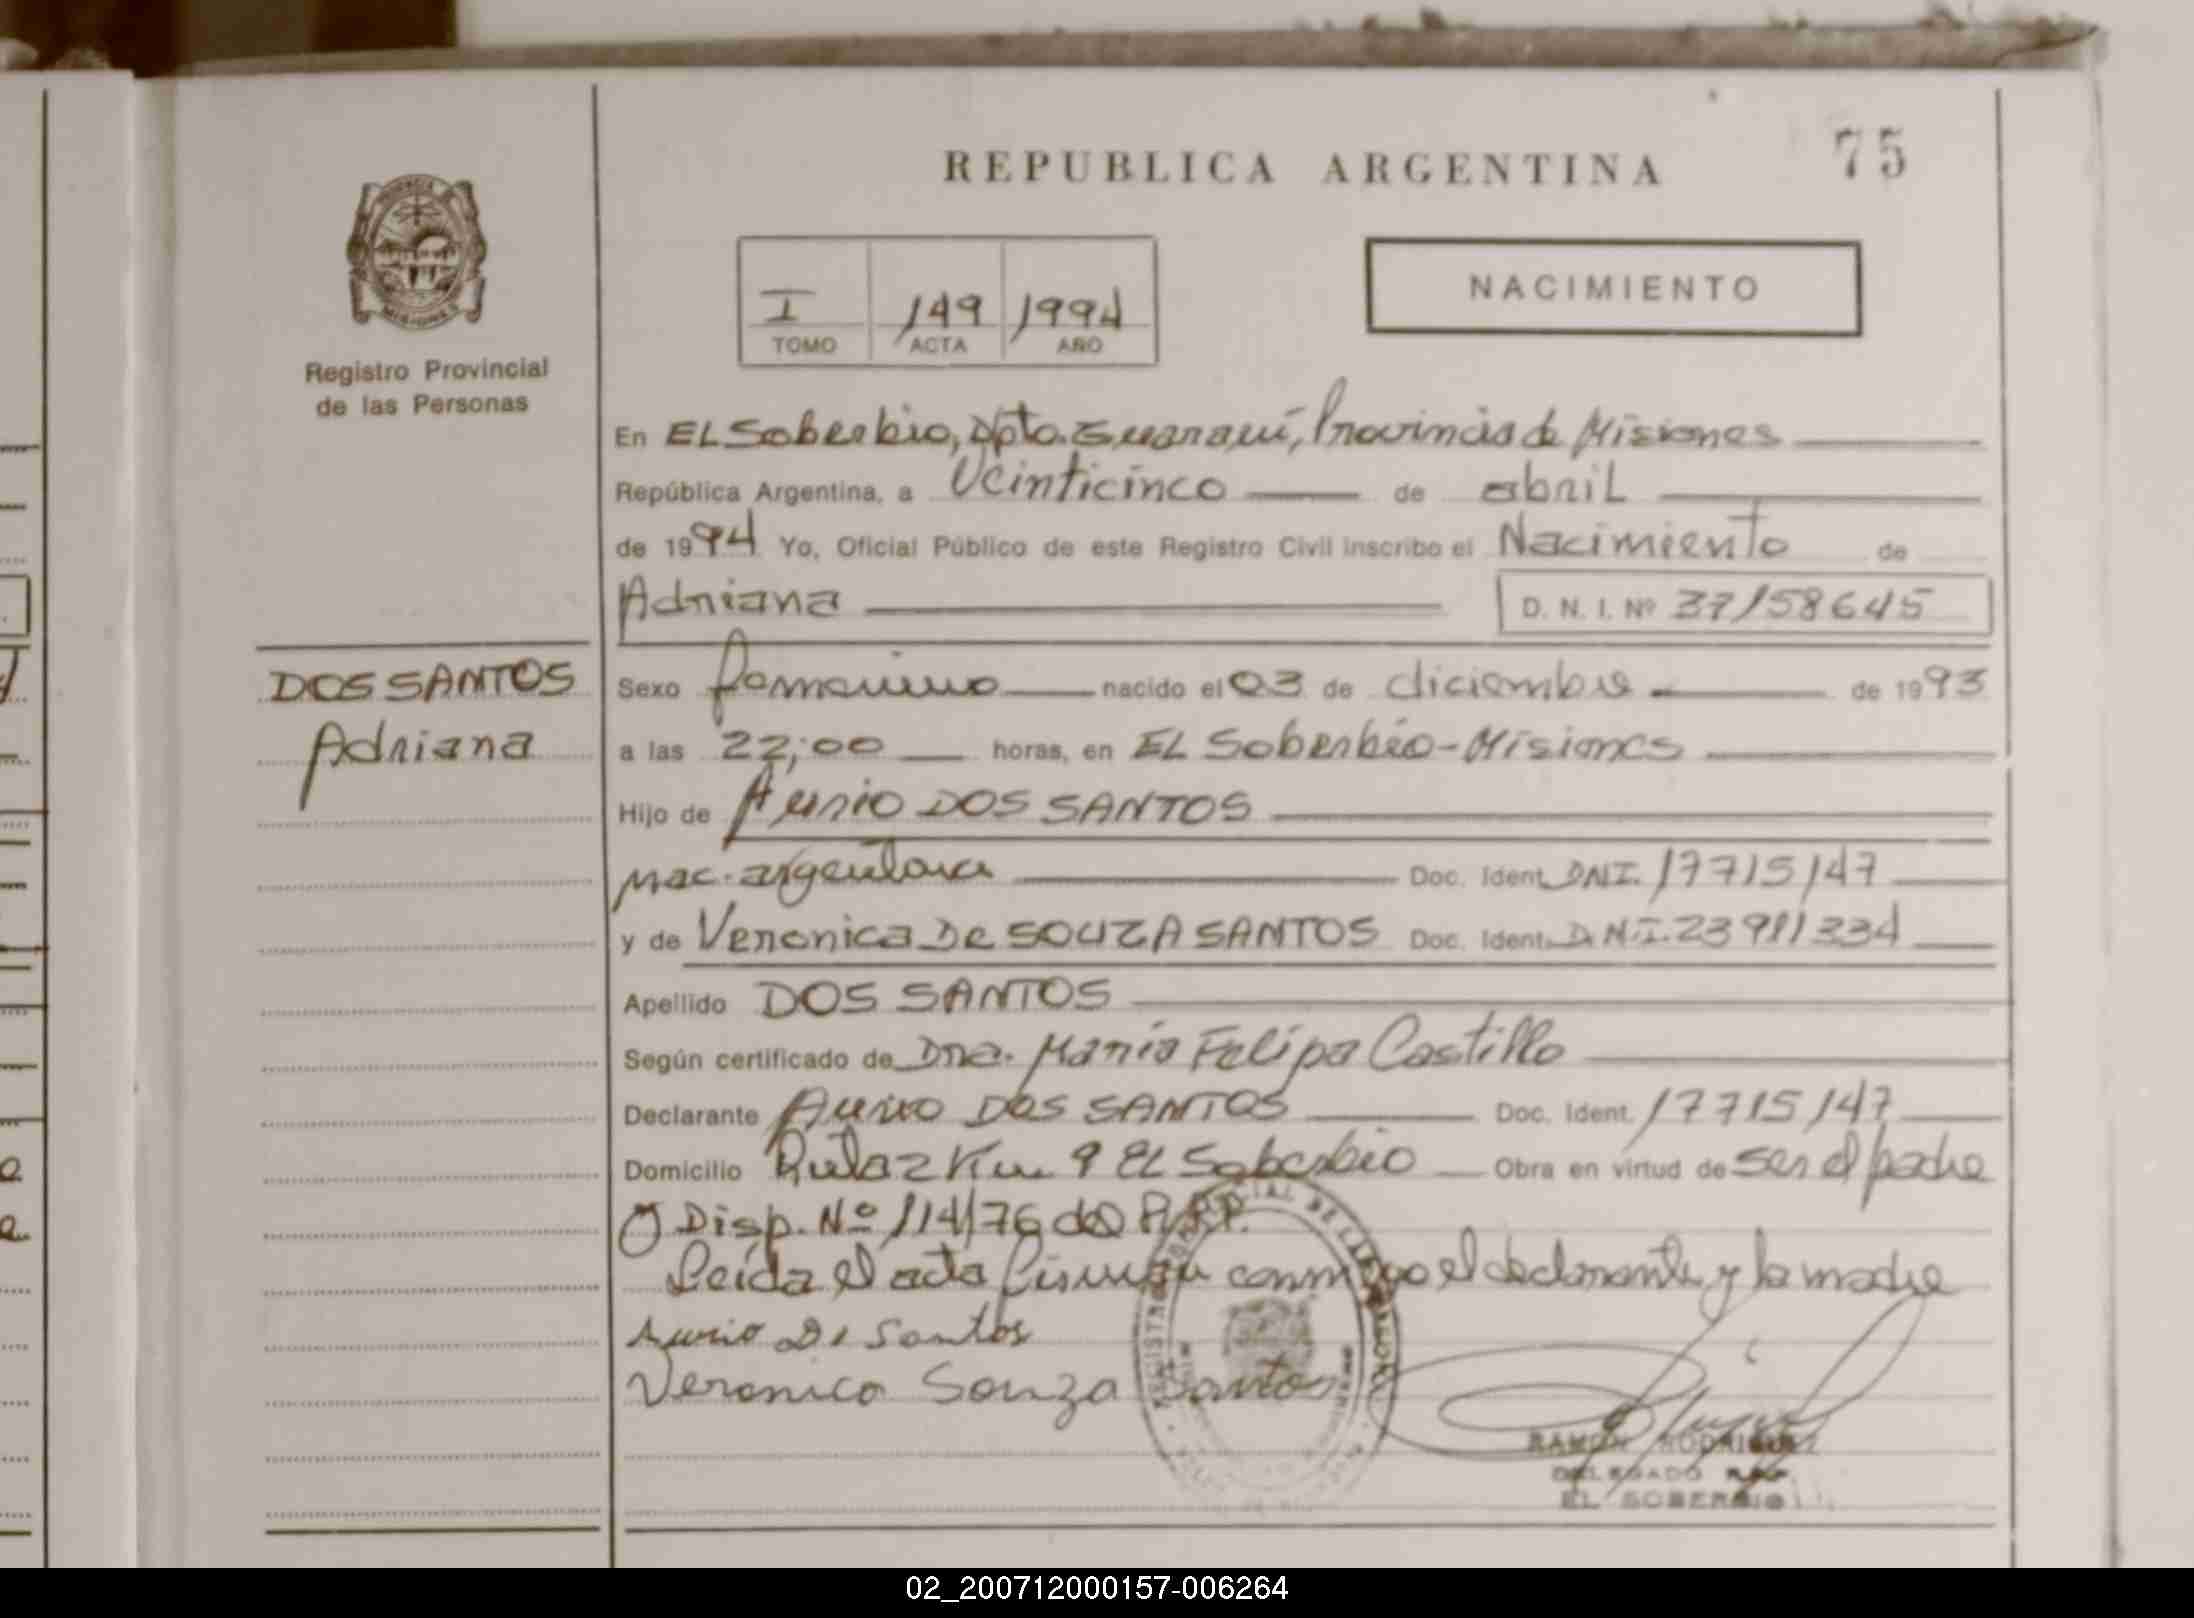 75
REPUBLICA ARGENTINA
NACIMIENTO
I 149 1994
TOMO ACTA AÑO
Registro Provincial
de las Personas
En EL Soberbio, Dpto. Guaraní, Provincia de Misiones
República Argentina, a Veinticinco de abril
de 1994 Yo, Oficial Público de este Registro Civil inscribo el Nacimiento de
Adriana D. N. I. Nº 37158645
DOS SANTOS
Adriana
Sexo femenino nacido el 03 de diciembre de 1993
a las 22;00 horas, en EL Soberbio - Misiones
Hijo de Aurio DOS SANTOS
nac. argentina Doc. Ident. DNI. 17715147
y de Veronica De SOUZA SANTOS Doc. Ident. D.N.I. 23911334
Apellido DOS SANTOS
Según certificado de Dra. María Felipa Castillo
Declarante Aurio DOS SANTOS Doc. Ident. 17715147
Domicilio Ruta 2 Km 9 EL Soberbio Obra en virtud de ser el padre
y Disp. Nº 114/76 del R.P.P.
Leída el acta firman conmigo el declarante y la madre
Aurio D. Santos
Veronica Souza Santos
RAMON RODRIGUEZ
DELEGADO R.P.P.
EL SOBERBIO
02_200712000157-006264